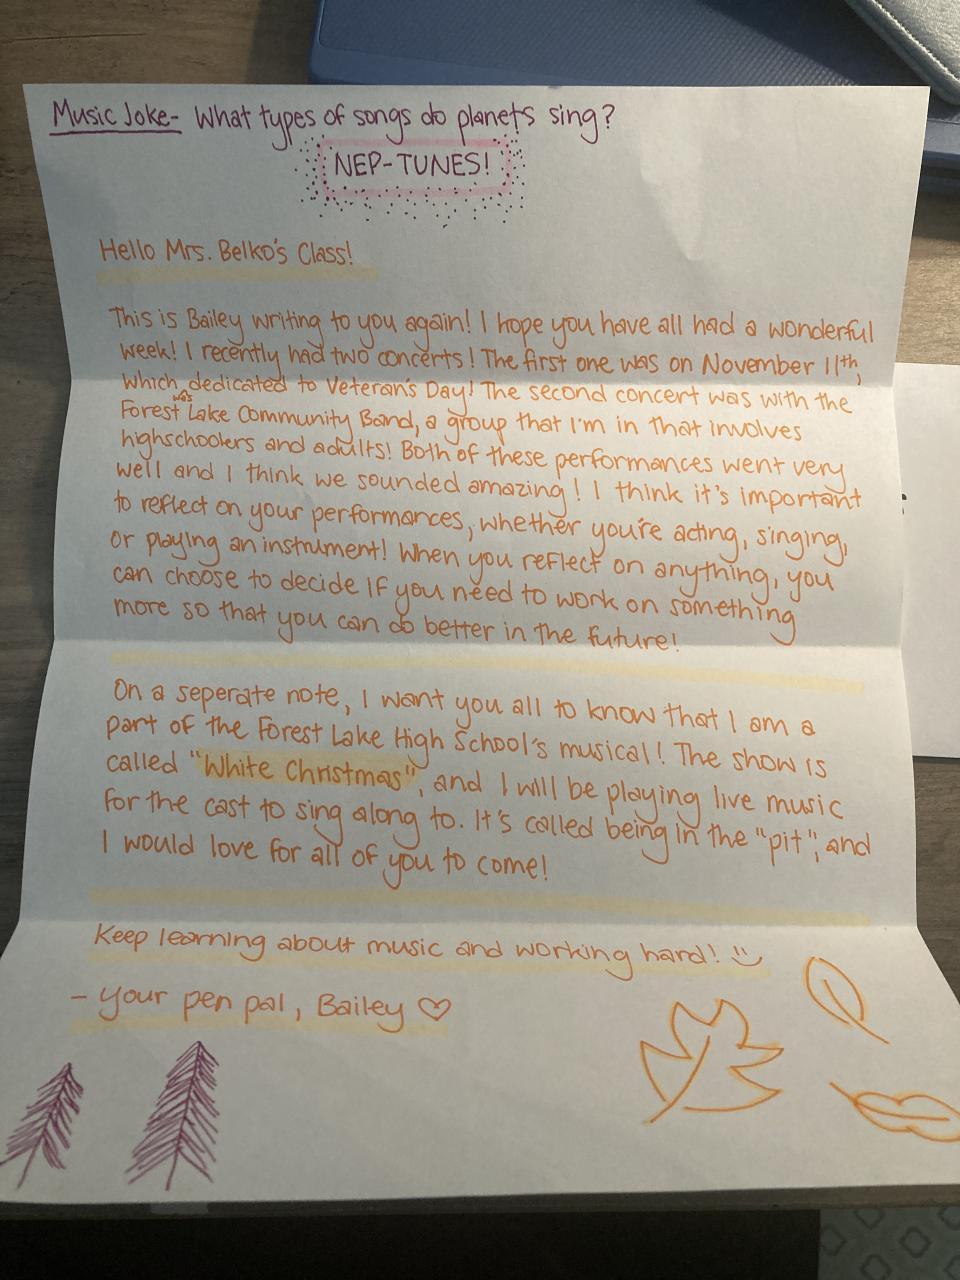 Music Joke- What types of songs do planets sing?
NEP-TUNES!
Hello Mrs. Belko's Class!
This is Bailey writing to you again! I hope you have all had a wonderful
week! I recently had two concerts! The first one was on November 11th,
which was dedicated to Veteran's Day! The second concert was with the
Forest Lake Community Band, a group that I'm in that involves
highschoolers and adults! Both of these performances went very
well and I think we sounded amazing! I think it's important
to reflect on your performances, whether you're acting, singing,
or playing an instrument! When you reflect on anything, you
can choose to decide if you need to work on something
more so that you can do better in the future!
On a seperate note, I want you all to know that I am a
part of the Forest Lake High School's musical! The show is
called "White Christmas", and I will be playing live music
for the cast to sing along to. It's called being in the "pit", and
I would love for all of you to come!
Keep learning about music and working hard!
- your pen pal, Bailey